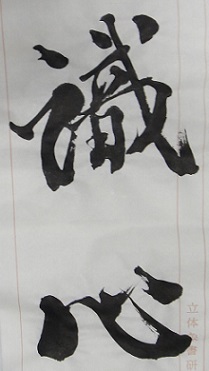 識心
立体
書研